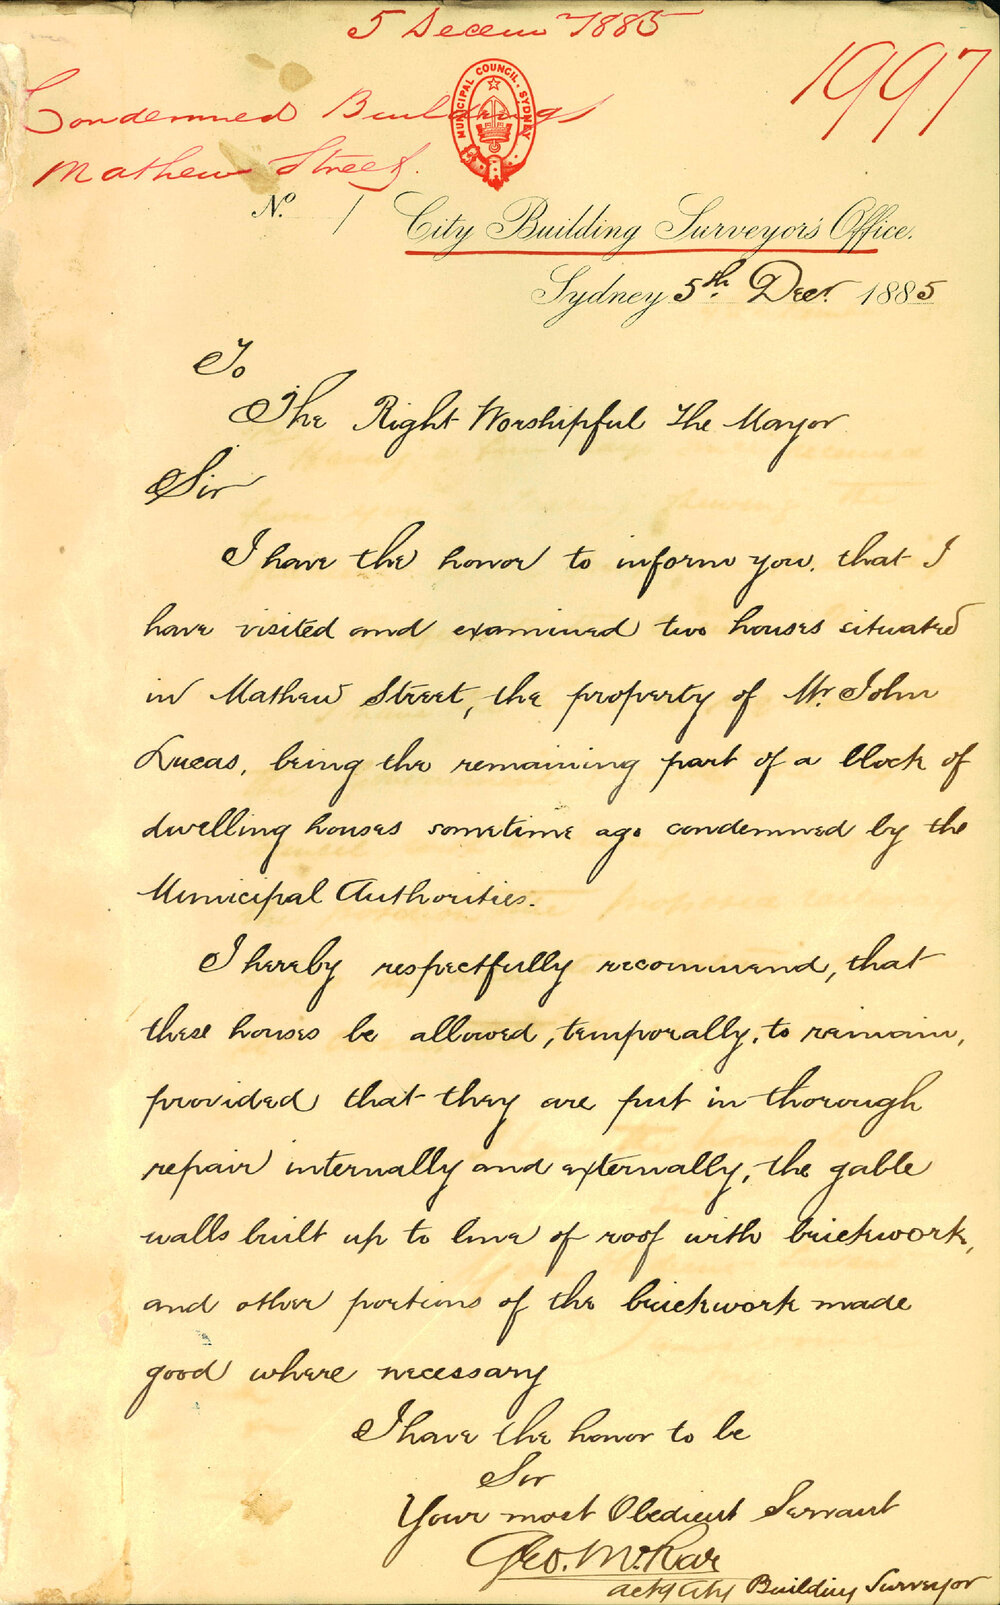 5 Decem 1885
1997
Condemned Buildings
Mathew Street.
MUNICIPAL COUNCIL. SYDNEY
No. /
City Building Surveyor's Office.
Sydney 5th. Decr. 1885
To
The Right Worshipful The Mayor
Sir
I have the honor to inform you. that I
have visited and examined two houses situated
in Mathew Street, the property of Mr. John
Lucas, being the remaining part of a block of
dwelling houses sometime ago condemned by the
Municipal Authorities.
I hereby respectfully recommend, that
these houses be allowed, temporally, to remain,
provided that they are put in thorough
repair internally and externally, the gable
walls built up to line of roof with brickwork,
and other portions of the brickwork made
good where necessary
I have the honor to be
Sir
Your most Obedient Servant
Geo. McRae
Actg City Building Surveyor